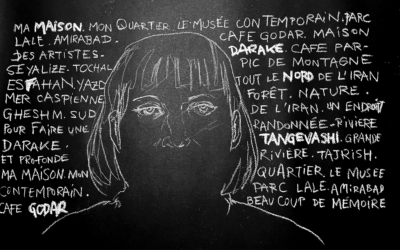 MA MAISON. MON QUARTIER. LE MUSÉE CONTEMPORAIN. PARC
LALE. AMIRABAD.
CAFE GODAR. MAISON
DES ARTISTES.
DARAKE. CAFE PAR-
SEYALIZE. TOCHAL
PIC DE MONTAGNE
ESFAHAN. YAZD
TOUT LE NORD DE L'IRAN
MER CASPIENNE
FORÊT. NATURE.
GHESHM. SUD
DE L'IRAN. UN ENDROIT
POUR FAIRE UNE
RANDONNÉE. RIVIERE
DARAKE.
TANGEVASHI. GRANDE
ET PROFONDE
RIVIÈRE. TAJRISH.
MA MAISON. MON
QUARTIER. LE MUSEE
CONTEMPORAIN.
PARC LALE. AMIRABAD
CAFE GODAR
BEAUCOUP DE MÉMOIRE